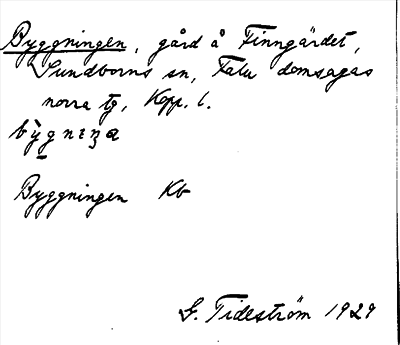 Byggningen, gård å Finngärdet,
Sundborns sn, Falu domsagas
norra tg, Kopp. l.
bỳgnɩŋa
Byggningen Kb
G. Tideström 1929